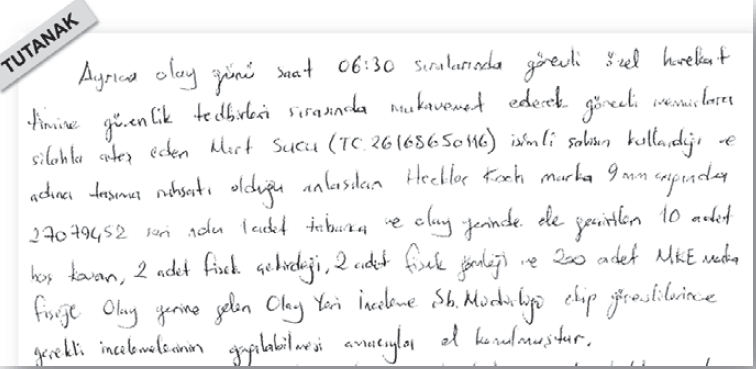 TUTANAK
Ayrıca olay günü saat 06:30 sıralarında görevli özel harekat
timine güvenlik tedbirleri sırasında mukavemet ederek görevli memurlara
silahla ateş eden Mert Sucu (TC. 26168650116) isimli şahsın kullandığı ve
adına taşıma ruhsatı olduğu anlaşılan Heckler Koch marka 9mm çapındaki
27079452 seri nolu 1 adet tabanca ve olay yerinde ele geçirilen 10 adet
boş kovan, 2 adet fişek çekirdeği, 2 adet fişek gömleği ve 200 adet MKE marka
fişeğe Olay yerine gelen Olay Yeri İnceleme Şb. Müdürlüğü ekip görevlilerince
gerekli incelemelerinin yapılabilmesi amacıyla el konulmuştur.